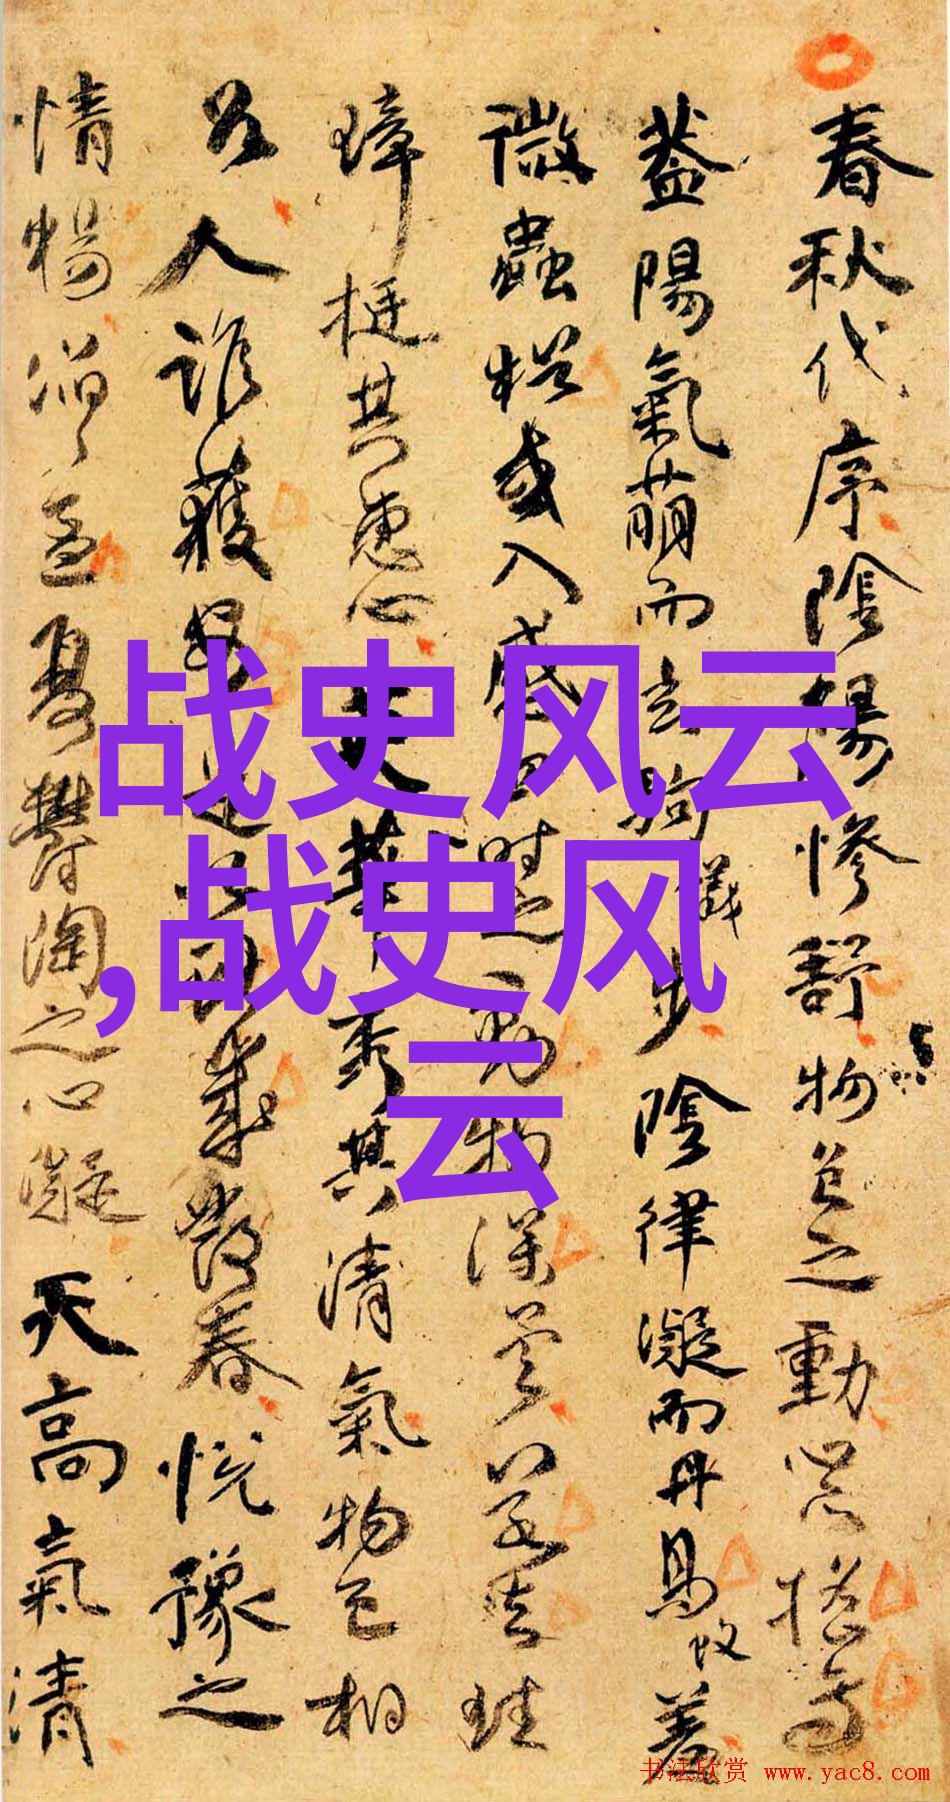 春秋代序陰陽慘舒物色之動心亦搖焉
蓋陽氣萌而玄駒蟻步陰律凝而丹鳥蚊羞
微蟲猶或入感四時之動物深矣若夫珪
璋挺其惠心英華秀其清氣物色相
召人誰獲安是以獻歲發春悅豫之
情暢滔滔孟夏鬱陶之心凝天高氣清
战史风云
,战史风
云
书法欣赏 www.yac8.com